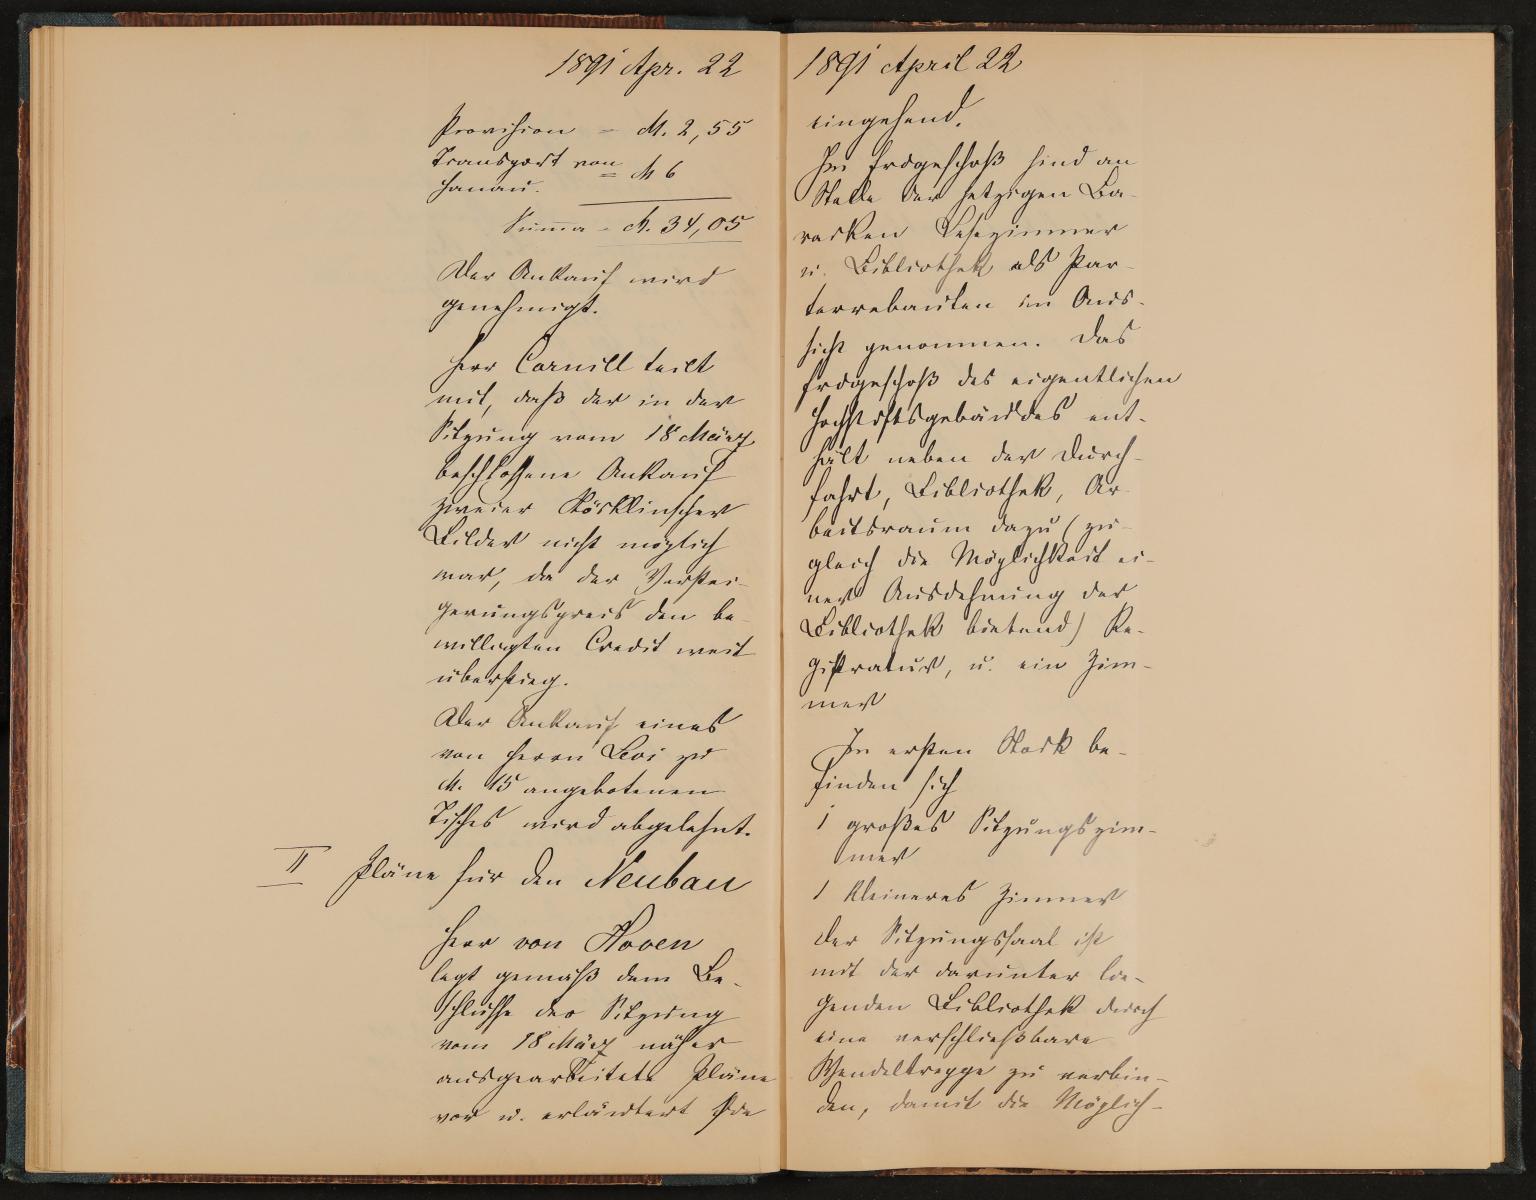 1891 Apr. 22
Provision = M. 2,55
Transport von
Hanau. = M 6
Summa = M. 34,05
Der Ankauf wird
genehmigt.
Herr Cornill teilt
mit, daß der in der
Sitzung vom 18 März
beschlossene Ankauf
zweier Röschlinscher
Bilder nicht möglich
war, da der Verstei-
gerungspreis den be-
willigten Credit weit
überstieg.
Der Ankauf eines
von Herrn Loi zu
M. 15 angebotenen
Tisches wird abgelehnt.
II Pläne für den Neubau
Herr von Hoven
legt gemäß dem Be-
schlusse der Sitzung
vom 18 März näher
ausgearbeitete Pläne
vor u. erläutert sie
1891 April 22
eingehend.
Im Erdgeschoß sind an
Stelle der jetzigen Ba-
racken Lesezimmer
u. Bibliothek als Par-
terrebauten in Aus-
sicht genommen. Das
Erdgeschoß des eigentlichen
Hochstiftsgebäudes ent-
hält neben der Durch-
fahrt, Bibliothek, Ar-
beitsraum dazu (zu-
gleich die Möglichkeit ei-
ner Ausdehnung der
Bibliothek bietend) Re-
gistratur, u. ein Zim-
mer
Im ersten Stock be-
finden sich
1 großes Sitzungszim-
mer
1 kleineres Zimmer
Der Sitzungssaal ist
mit der darunter lie-
genden Bibliothek durch
eine verschließbare
Wendeltreppe zu verbin-
den, damit die Möglich-